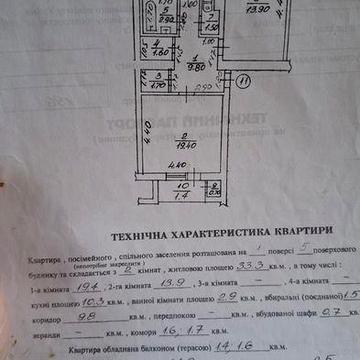 5
2.90
7
1.50
13.90
4
1.60
1
9.80
3
1.70
2.90
11
4.40
2
19.40
4.40
10
1.4
ТЕХНІЧНА ХАРАКТЕРИСТИКА КВАРТИРИ
Квартира , посімейного , спільного заселення розташована на 1 поверсі 5 поверхового
(непотрібне закреслити)
будинку та складається з 2 кімнат , житловою площею 33.3 кв.м , в тому числі :
1-а кімната 19.4 , 2-га кімната 13.9 , 3-я кімната — , 4-а кімната —
кухні площею 10.3 кв.м , ванної кімнати площею 2.9 кв.м , вбиральні (поєднаної) 1.5
коридор 9.8 кв.м , передпокою — кв.м , вбудованої шафи 0.7 к
веранди — кв.м , комори 1.6, 1.7 кв.м .
Квартира обладнана балконом (терасою) 1.4 1.6